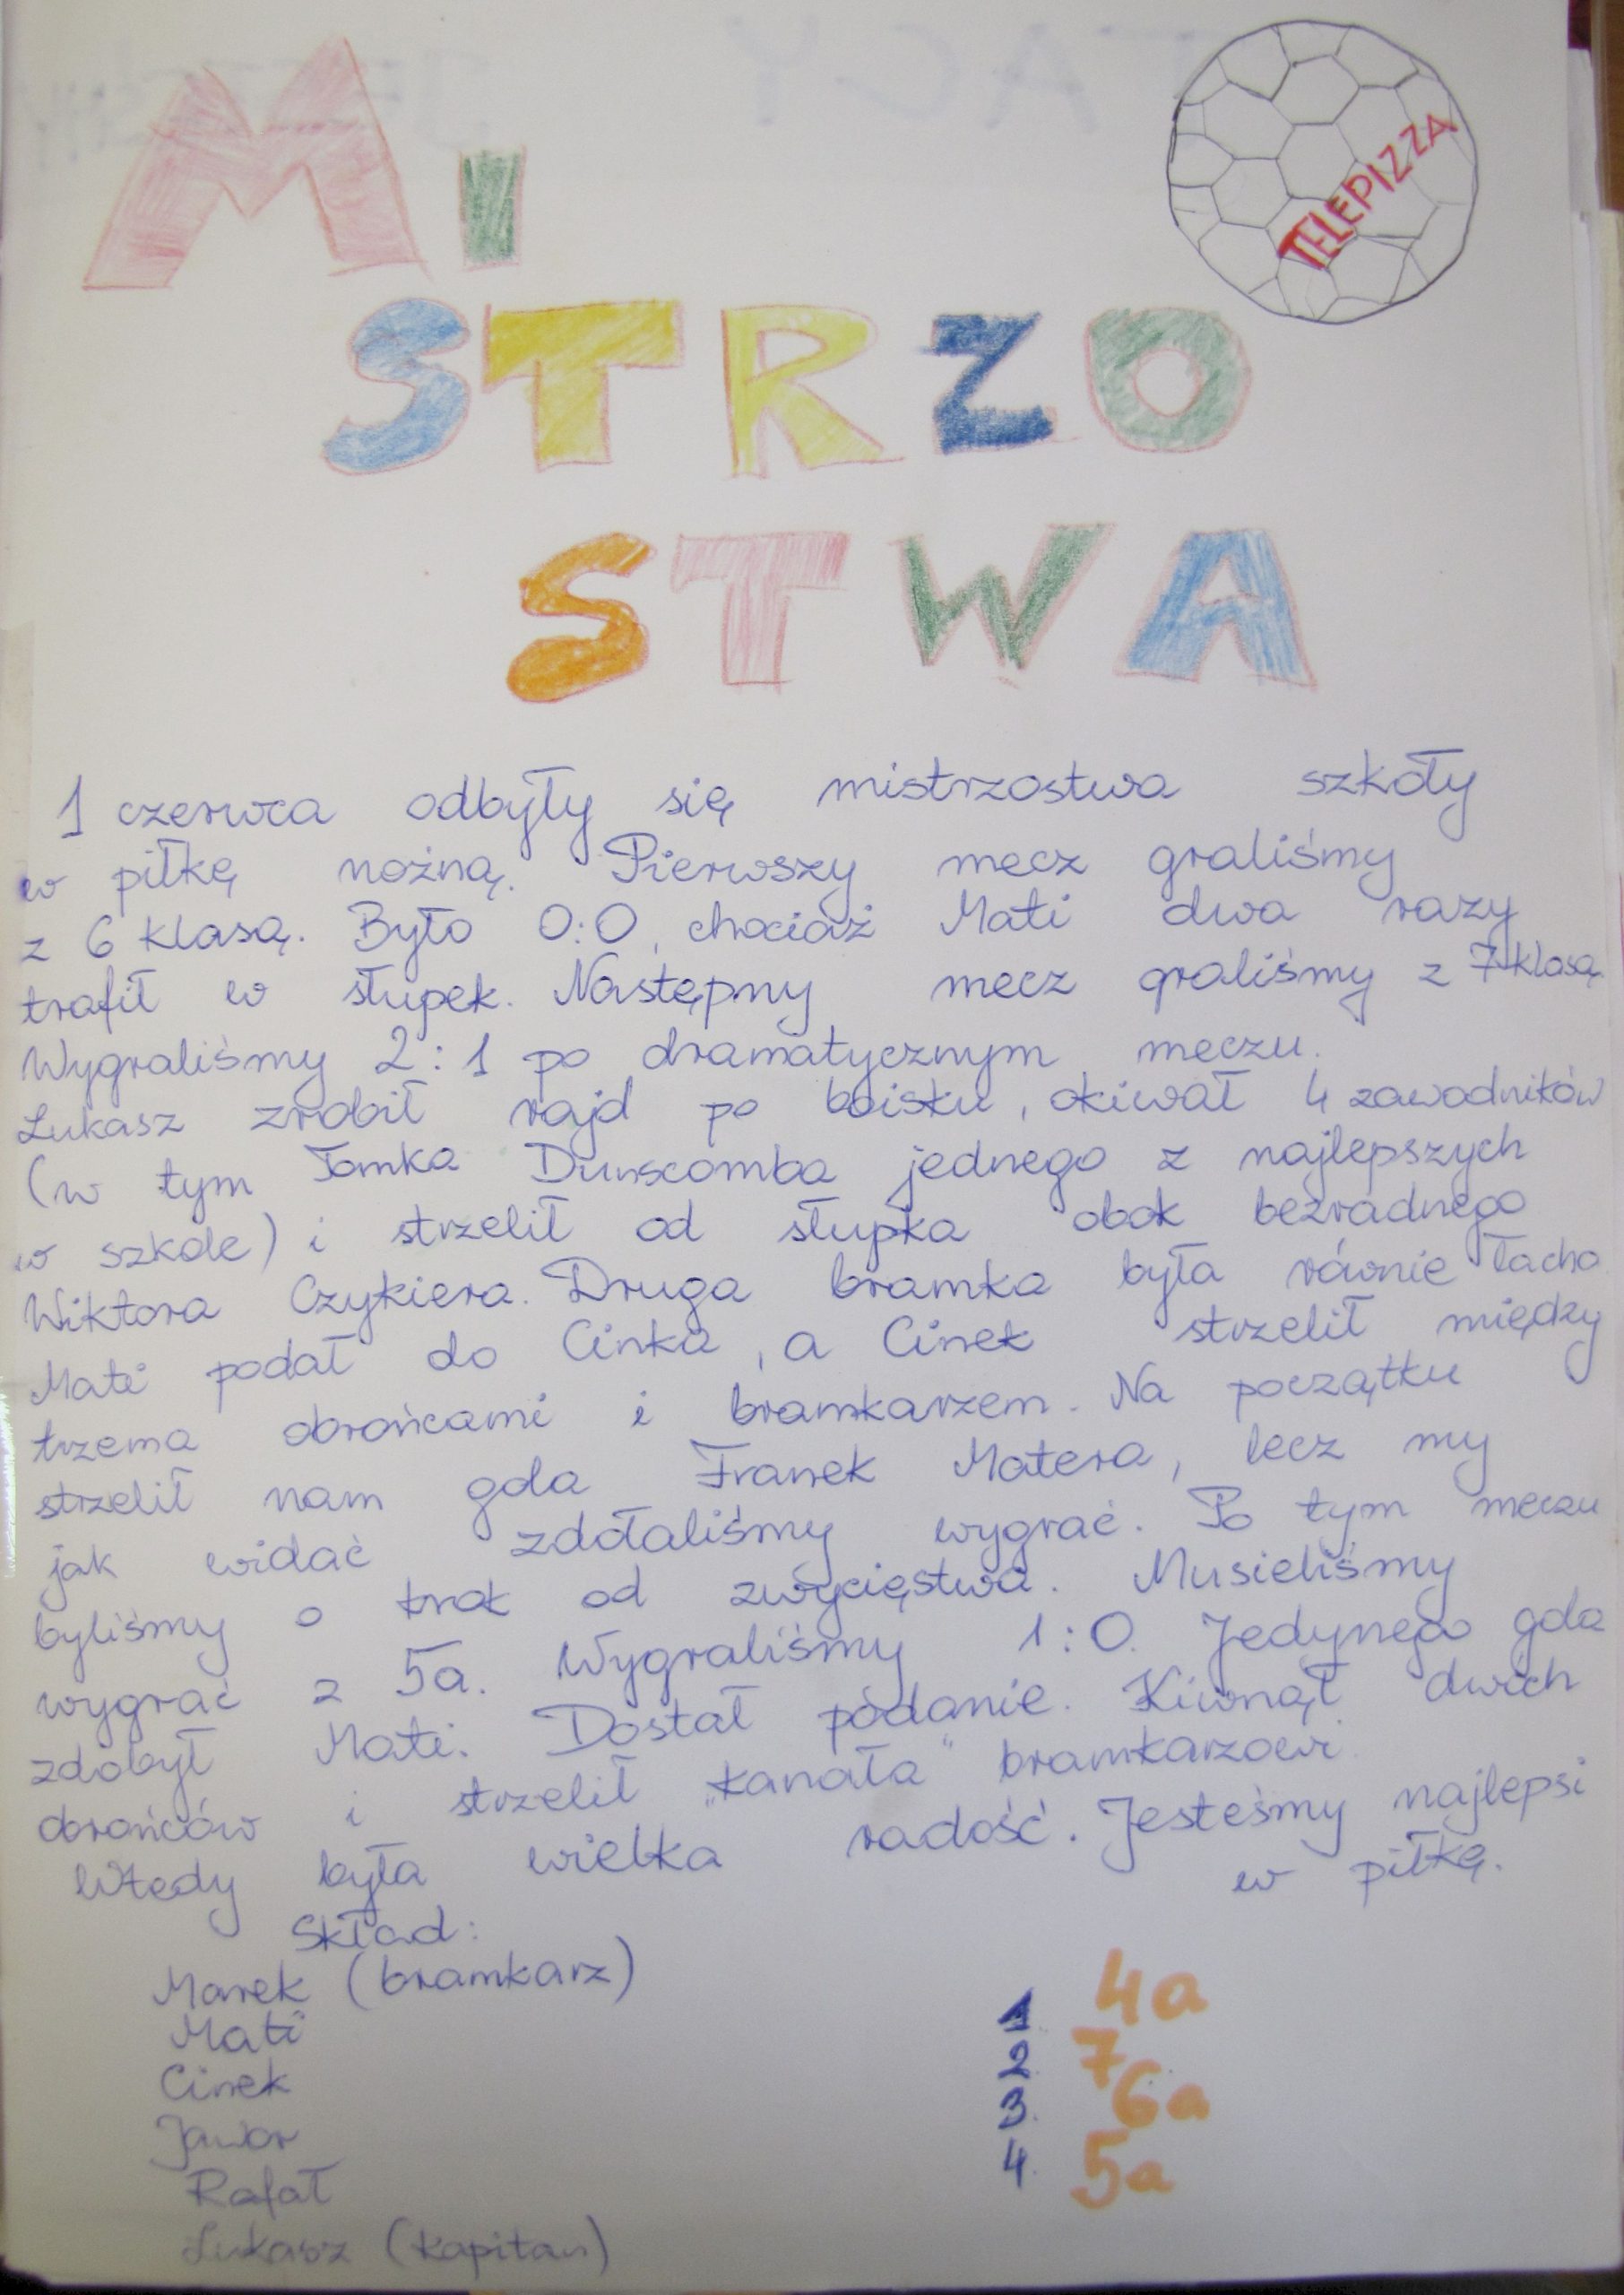 MI
TELEPIZZA
STRZO
STWA
1 czerwca odbyły się mistrzostwa szkoły
w piłkę nożną. Pierwszy mecz graliśmy
z 6 klasą. Było 0:0, chociaż Mati dwa razy
trafił w słupek. Następny mecz graliśmy z 7 klasą
Wygraliśmy 2:1 po dramatycznym meczu.
Łukasz zrobił rajd po boisku, okiwał 4 zawodników
(w tym Tomka Dunscomba jednego z najlepszych
w szkole) i strzelił od słupka obok bezradnego
Wiktora Czykiera. Druga bramka była równie łacha
Mati podał do Cinka, a Cinek strzelił między
trzema obrońcami i bramkarzem. Na początku
strzelił nam gola Franek Matera, lecz my
jak widać zdołaliśmy wygrać. Po tym meczu
byliśmy o krok od zwycięstwa. Musieliśmy
wygrać z 5a. Wygraliśmy 1:0. Jedynego gola
zdobył Mati. Dostał podanie. Kiwnął dwóch
obrońców i strzelił „kanała" bramkarzowi.
Wtedy była wielka radość. Jesteśmy najlepsi
w piłkę.
Skład:
Marek (bramkarz)
Mati
Cinek
Jawor
Rafał
Łukasz (kapitan)
1. 4a
2. 7
3. 6a
4. 5a